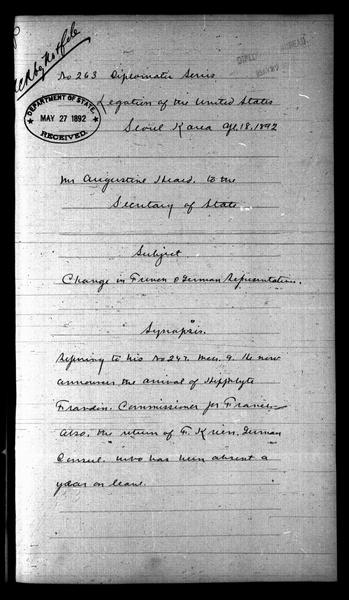 No 263 Diplomatic Series
DEPARTMENT OF STATE
MAY 27 1892
RECEIVED
Legation of the United States
Seoul Korea Apl. 18. 1892
Mr Augustine Heard, to the
Secretary of State
Subject
Change in French & German Representation.
Synopsis.
Referring to his No 247. Mch. 9. He now
announces the arrival of Hippolyte
Frandin, Commissioner for France
Also, the return of F. Krien, German
Consul, who has been absent a
year on leave.